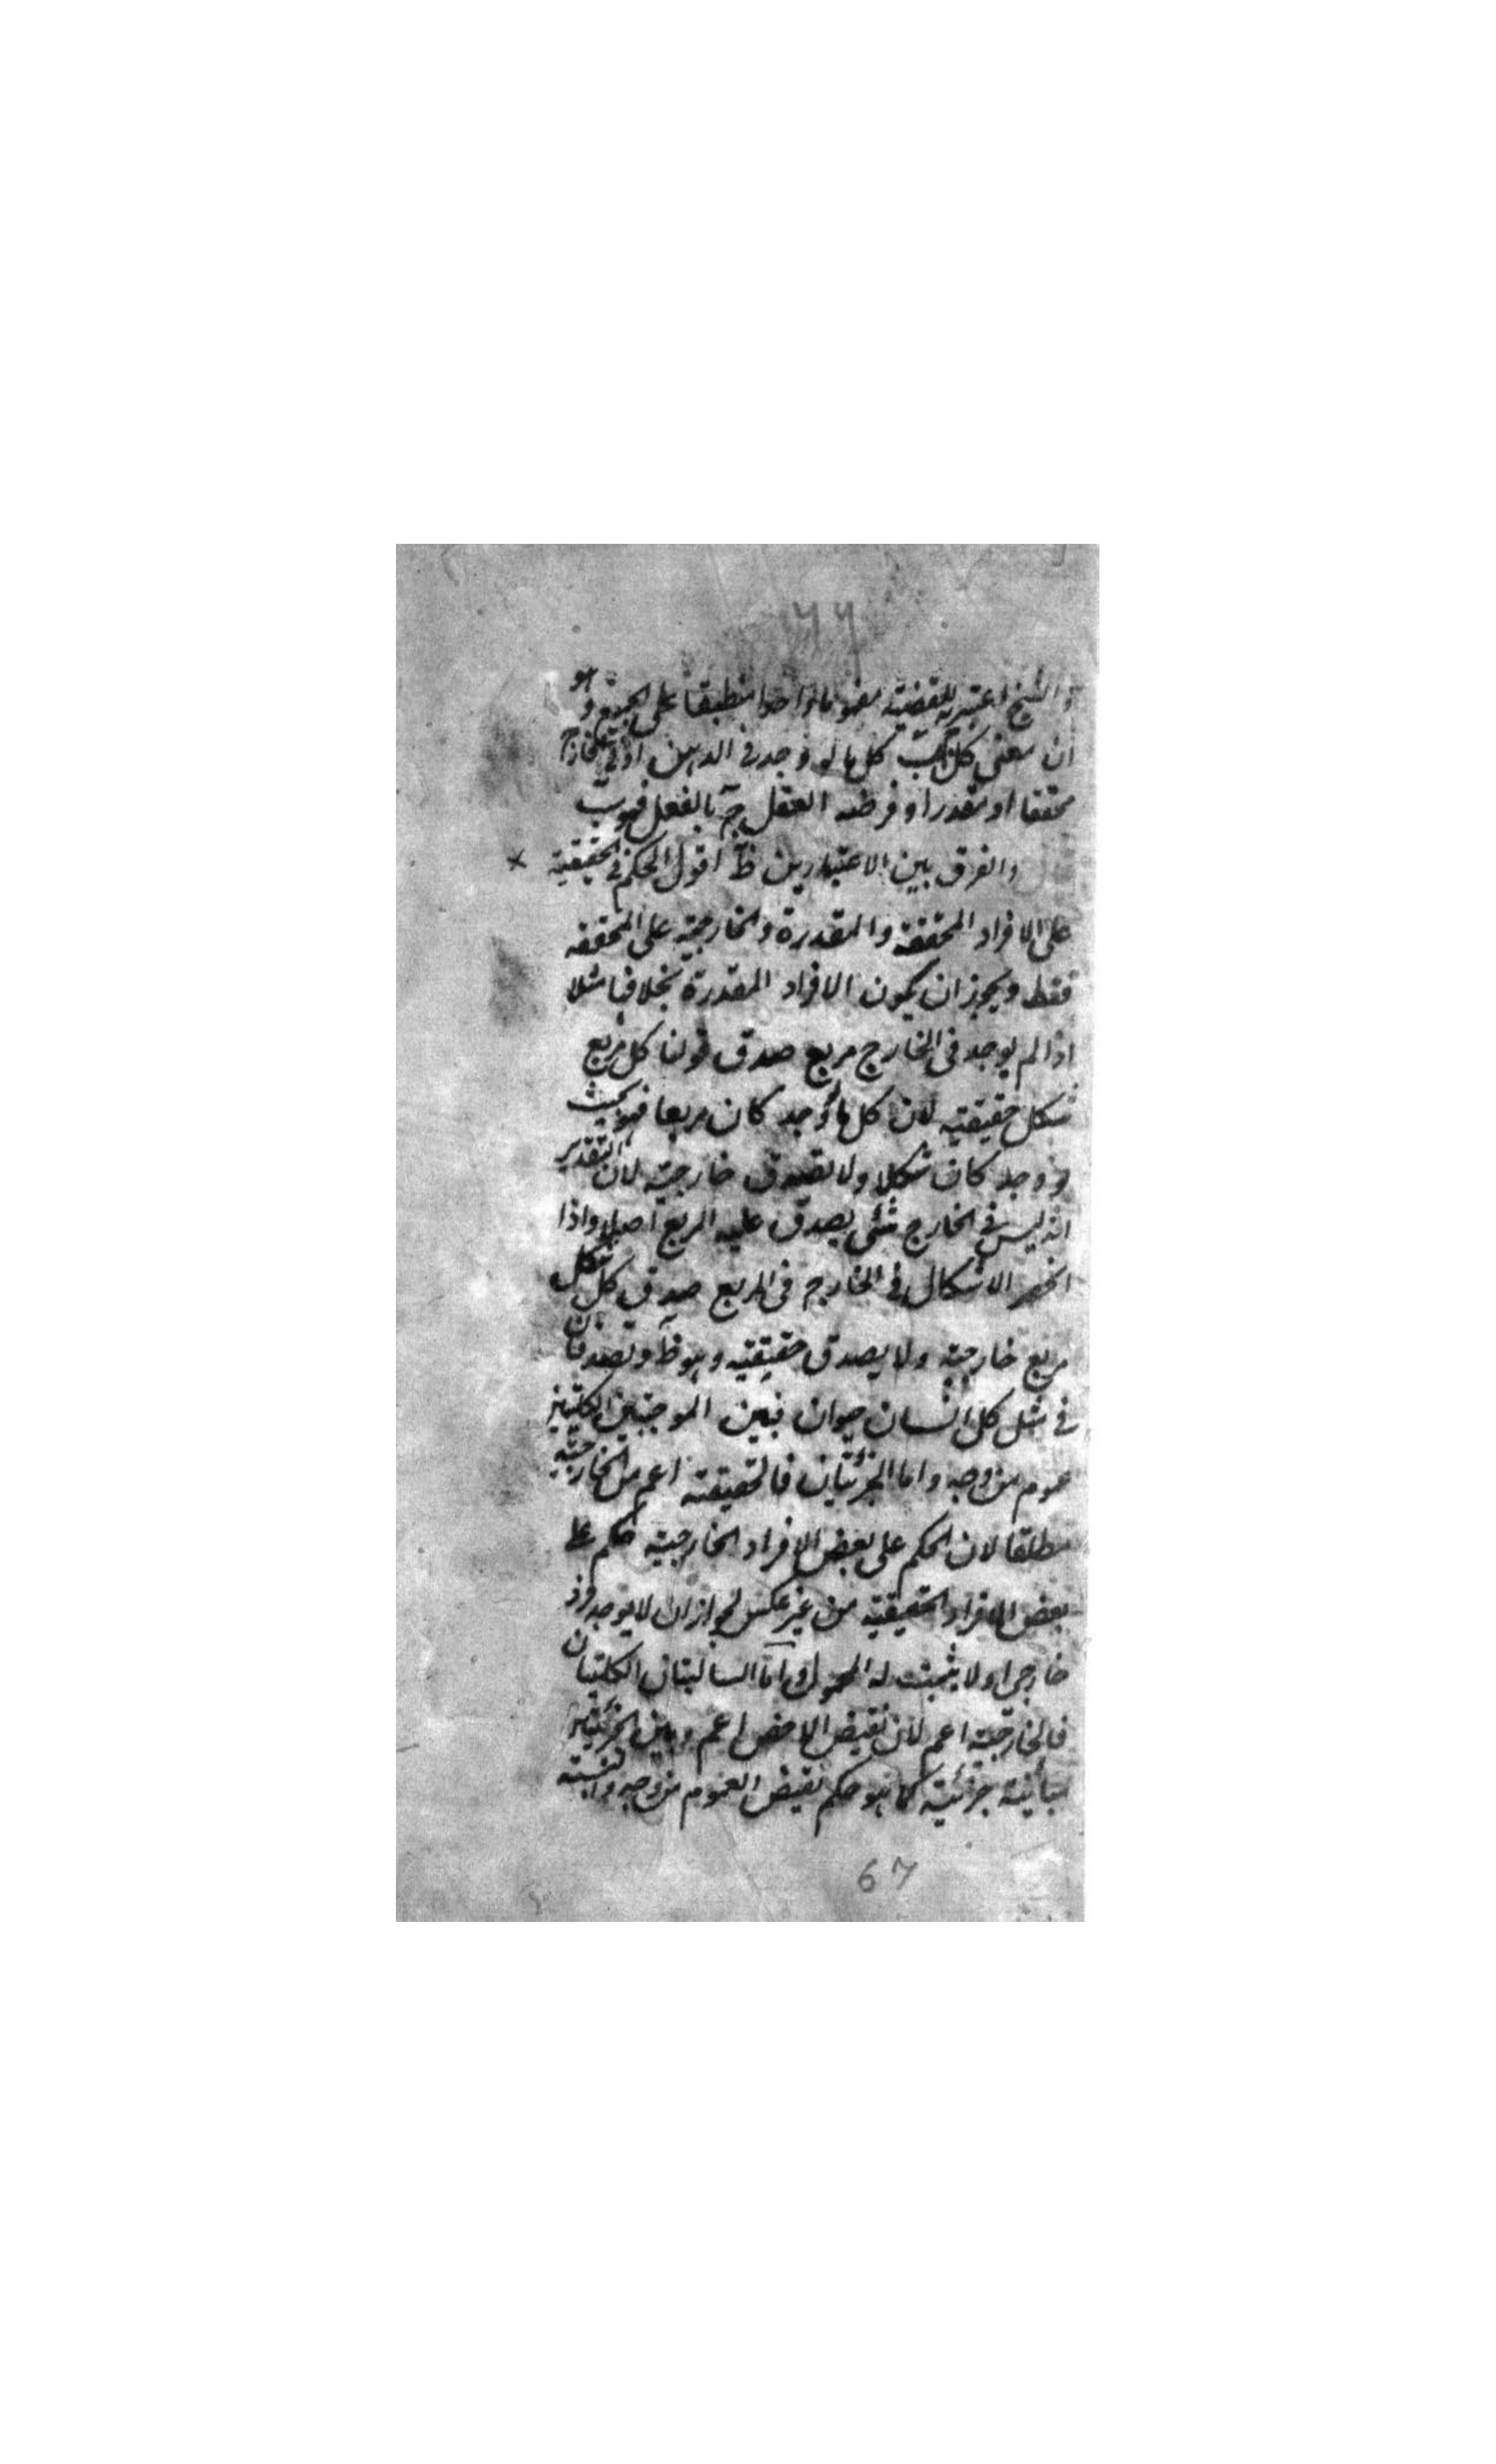 ٦٦
والشيخ اعتبر للقضية مفهوما واحدا منطبقا على الجميع وهو
ان معنى كل ج ب كل ما لو وجد في الذهن او في الخارج
محققا او مقدرا وفرضه العقل ج بالفعل فهو ب
والفرق بين الاعتبارين ظ اقول الحكم في الحقيقية
على الافراد المحققة والمقدرة والخارجية على المحققة
فقط ويجوز ان يكون الافراد المقدرة بخلافها مثلا
اذا لم يوجد في الخارج مربع صدق قولنا كل مربع
شكل حقيقية لان كل ما لو وجد كان مربعا فهو بحيث
لو وجد كان شكلا ولا تصدق خارجية لان التقدير
انه ليس في الخارج شئ يصدق عليه المربع اصلا واذا
انحصر الاشكال في الخارج في المربع صدق كل شكل
مربع خارجية ولا يصدق حقيقية وهو ظ وتصدقان
في مثل كل انسان حيوان فبين الموجبتين الكليتين
عموم من وجه واما الجزئيتان فالحقيقية اعم من الخارجية
مطلقا لان الحكم على بعض الافراد الخارجية حكم على
بعض الافراد الحقيقية من غير عكس لجواز ان لا يوجد فرد
خارجي او لا يثبت له المحمول واما السالبتان الكليتان
فالخارجية اعم لان نقيض الاخص اعم وبين الجزئيتين
مباينة جزئية كما هو حكم نقيض العموم من وجه والنسبة
67